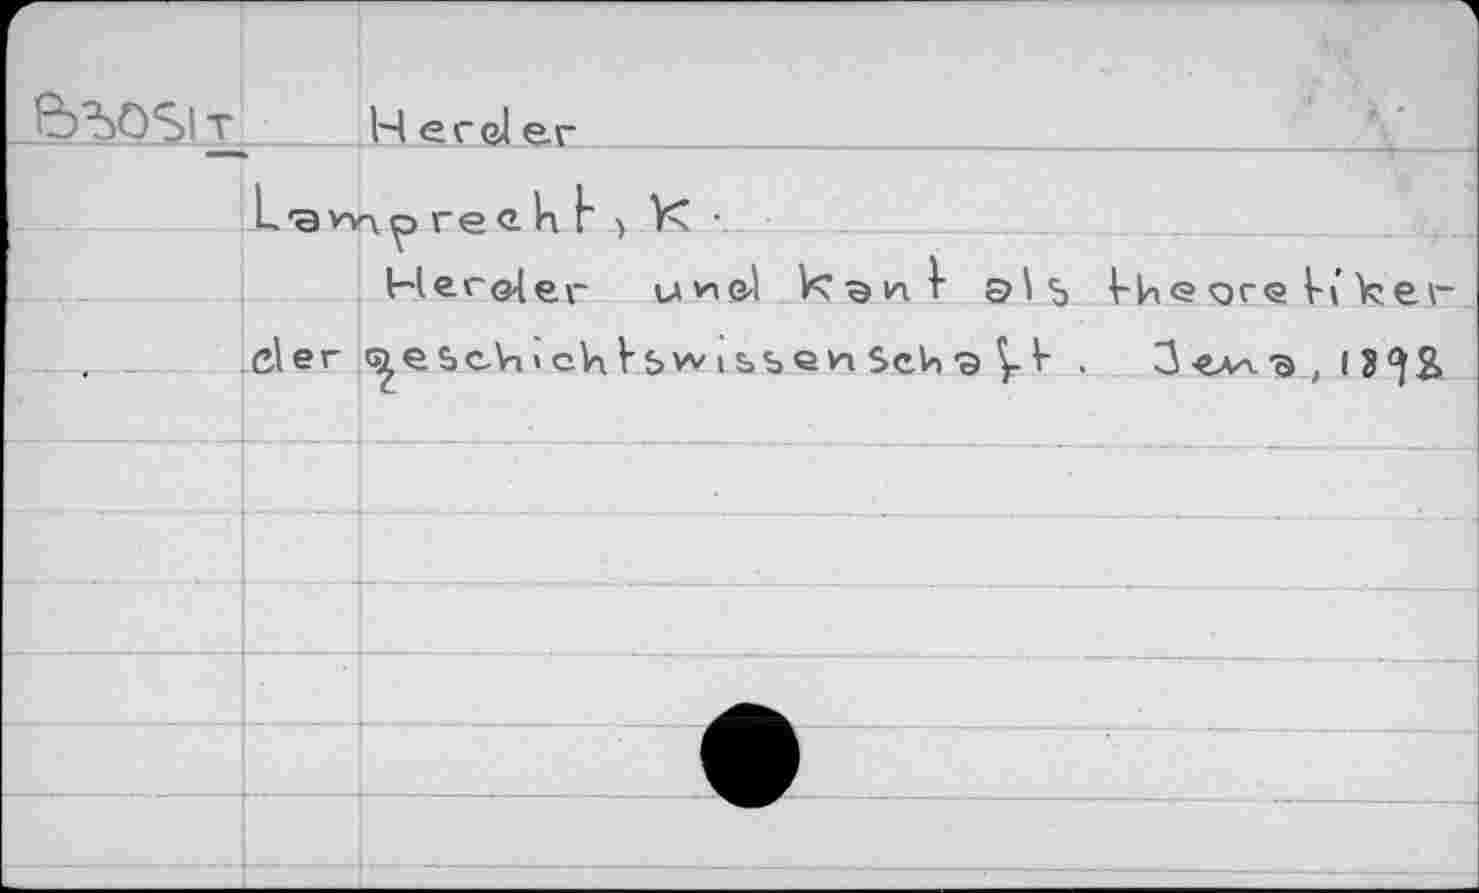 B3OSIT Herder
Lamprecht, K.
Herder und Kant als theoretiker
der geschichtswissenschaft. Jena, 1898